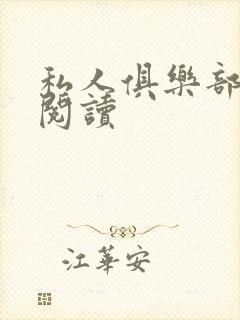 私人俱樂部
閱讀
江華安